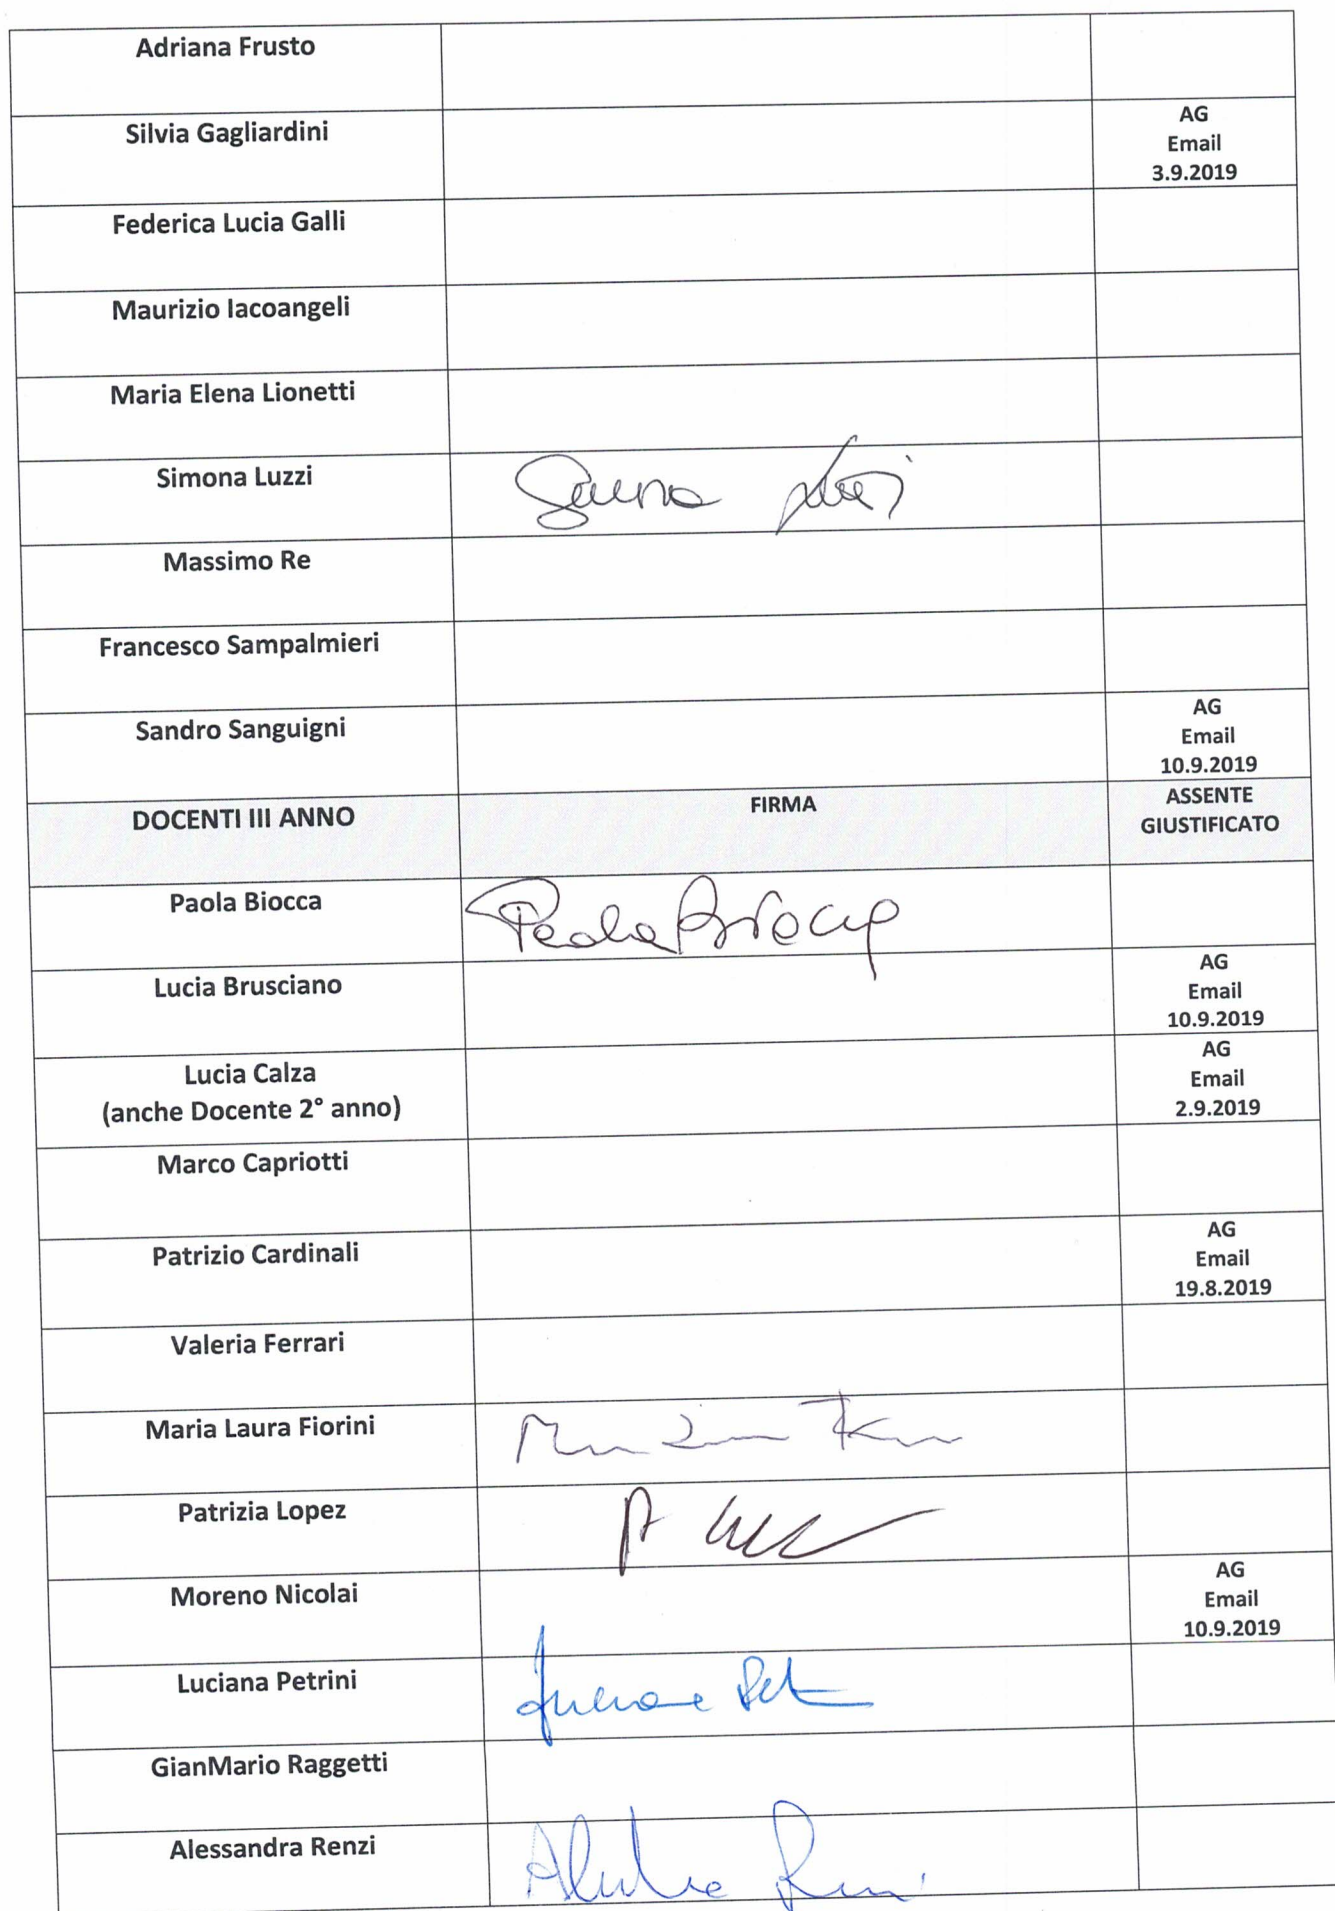 Adriana Frusto
Silvia Gagliardini
AG
Email
3.9.2019
Federica Lucia Galli
Maurizio Iacoangeli
Maria Elena Lionetti
Simona Luzzi
Massimo Re
Francesco Sampalmieri
Sandro Sanguigni
AG
Email
10.9.2019
DOCENTI III ANNO
FIRMA
ASSENTE
GIUSTIFICATO
Paola Biocca
Paola Biocca
Lucia Brusciano
AG
Email
10.9.2019
Lucia Calza
(anche Docente 2° anno)
AG
Email
2.9.2019
Marco Capriotti
Patrizio Cardinali
AG
Email
19.8.2019
Valeria Ferrari
Maria Laura Fiorini
Patrizia Lopez
Moreno Nicolai
AG
Email
10.9.2019
Luciana Petrini
GianMario Raggetti
Alessandra Renzi